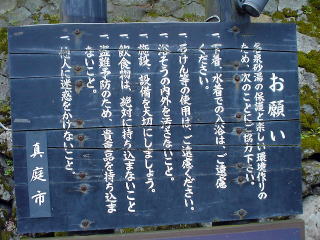 お願い
露泉砂湯の保護と楽しい環境作りの
ため、次のことにご協力下さい。
一、下着、水着での入浴は、ご遠慮
ください。
一、石けん等の使用は、ご遠慮ください。
一、浴そうの内外を汚さないこと。
一、施設、設備を大切にしましょう。
一、飲食物は、絶対に持ち込まないこと
一、盗難予防のため、貴重品を持ち込ま
ないこと。
一、他人に迷惑をかけないこと。
真庭市